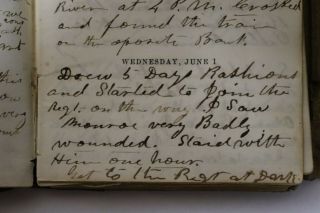 River at 2 P.M. Crossed
and found the train
on the oposite Bank.
WEDNESDAY, JUNE 1
Drew 5 Days Rashions
and Started to Join the
Regt. on the way I Saw
Monroe very Badly
wounded. Staid with
Him one hour.
Got to the Regt at Dark.